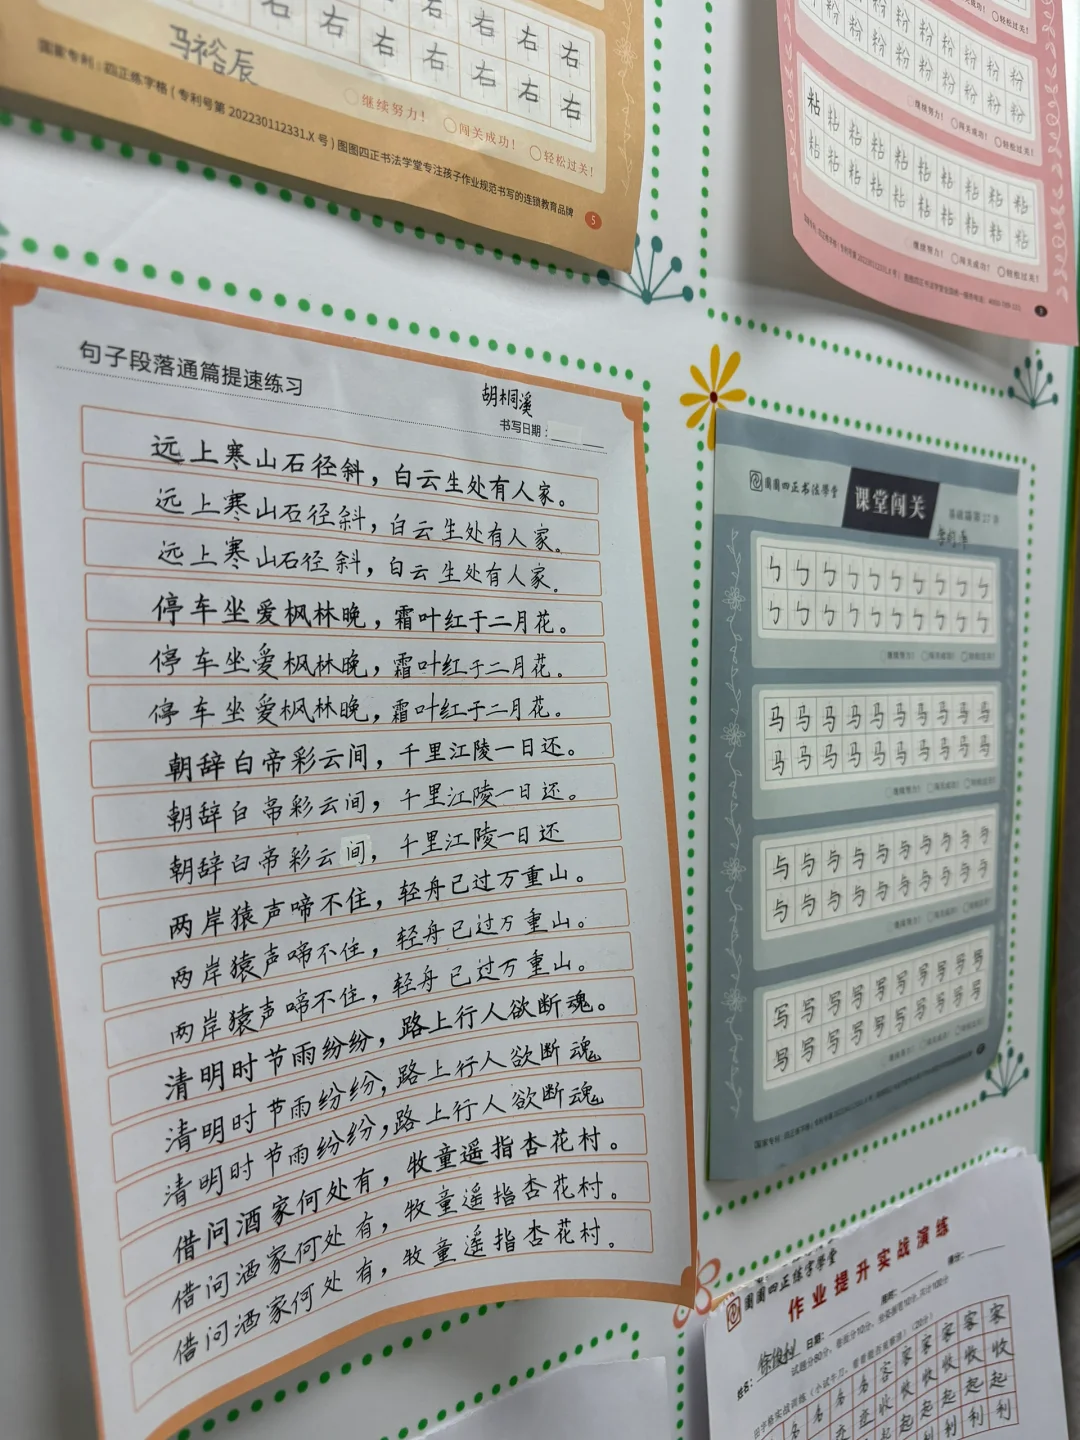 右 右 右 右 右 右
右 右 右 右 右
马裕辰
继续努力! 闯关成功! 轻松过关!
国家专利:四正练字格(专利号第 202230112331.X 号)图图四正书法学堂专注孩子作业规范书写的连锁教育品牌
5
粉 粉 粉 粉 粉 粉 粉 粉
粉 粉 粉 粉 粉 粉 粉
继续努力! 闯关成功! 轻松过关!
粘 粘 粘 粘 粘 粘 粘 粘 粘 粘
粘 粘 粘 粘 粘 粘 粘 粘 粘 粘
继续努力! 闯关成功! 轻松过关!
句子段落通篇提速练习
胡桐溪
书写日期:
远上寒山石径斜,白云生处有人家。
远上寒山石径斜,白云生处有人家。
远上寒山石径斜,白云生处有人家。
停车坐爱枫林晚,霜叶红于二月花。
停车坐爱枫林晚,霜叶红于二月花。
停车坐爱枫林晚,霜叶红于二月花。
朝辞白帝彩云间,千里江陵一日还。
朝辞白帝彩云间,千里江陵一日还。
朝辞白帝彩云间,千里江陵一日还
两岸猿声啼不住,轻舟已过万重山。
两岸猿声啼不住,轻舟已过万重山。
两岸猿声啼不住,轻舟已过万重山。
清明时节雨纷纷,路上行人欲断魂。
清明时节雨纷纷,路上行人欲断魂
清明时节雨纷纷,路上行人欲断魂
借问酒家何处有,牧童遥指杏花村。
借问酒家何处有,牧童遥指杏花村。
借问酒家何处有,牧童遥指杏花村。
图图四正书法学堂
课堂闯关
基础篇第27节
ㄣ ㄣ ㄣ ㄣ ㄣ ㄣ ㄣ ㄣ ㄣ
ㄣ ㄣ ㄣ ㄣ ㄣ ㄣ ㄣ ㄣ ㄣ
继续努力! 闯关成功! 轻松过关!
马 马 马 马 马 马 马 马 马
马 马 马 马 马 马 马 马 马
继续努力! 闯关成功! 轻松过关!
与 与 与 与 与 与 与 与 与
与 与 与 与 与 与 与 与 与
继续努力! 闯关成功! 轻松过关!
写 写 写 写 写 写 写 写 写
写 写 写 写 写 写 写 写 写
图图四正练字学堂
作业提升实战演练
姓名: 日期: 用时: 得分:
客 客 客 客 客 客
收 收 收 收 收 收
起 起 起 起 起
利 利 利